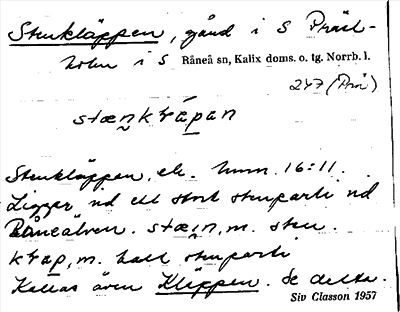 Stenkläppen, gård i S Präst-
holm i S Råneå sn, Kalix doms. o. tg. Norrb. l.
247 (Prä)
stæn̬krápan
Stenkläppen, ek. hmm. 16:11.
Ligger vid ett stort stenparti vid
Råneälven. stæin, m. sten.
krap, m. hall stenparti
Kallas även Kläppen. Se detta.
Siv Classon 1957